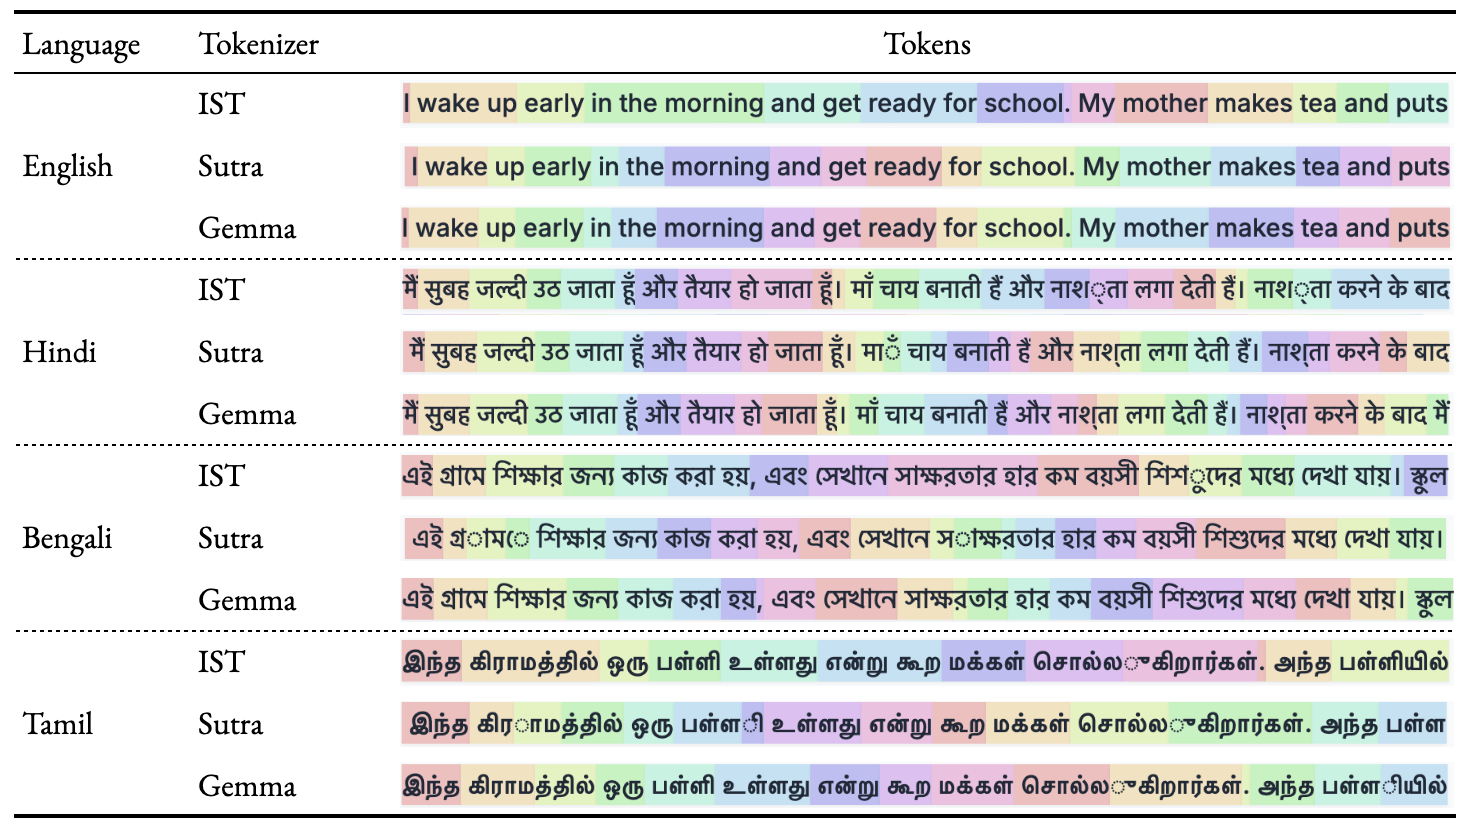 Language Tokenizer Tokens
IST I wake up early in the morning and get ready for school. My mother makes tea and puts
English Sutra I wake up early in the morning and get ready for school. My mother makes tea and puts
Gemma I wake up early in the morning and get ready for school. My mother makes tea and puts
IST मैं सुबह जल्दी उठ जाता हूँ और तैयार हो जाता हूँ। माँ चाय बनाती हैं और नाश◌्ता लगा देती हैं। नाश◌्ता करने के बाद
Hindi Sutra मैं सुबह जल्दी उठ जाता हूँ और तैयार हो जाता हूँ। मा◌ँ चाय बनाती हैं और नाश्ता लगा देती हैं। नाश्ता करने के बाद
Gemma मैं सुबह जल्दी उठ जाता हूँ और तैयार हो जाता हूँ। माँ चाय बनाती हैं और नाश्ता लगा देती हैं। नाश्ता करने के बाद मैं
IST এই গ্রামে শিক্ষার জন্য কাজ করা হয়, এবং সেখানে সাক্ষরতার হার কম বয়সী শিশ◌ুদের মধ্যে দেখা যায়। স্কুল
Bengali Sutra এই গ্র◌াম◌ে শিক্ষার জন্য কাজ করা হয়, এবং সেখানে স◌াক্ষরতার হার কম বয়সী শিশুদের মধ্যে দেখা যায়।
Gemma এই গ্রামে শিক্ষার জন্য কাজ করা হয়, এবং সেখানে সাক্ষরতার হার কম বয়সী শিশুদের মধ্যে দেখা যায়। স্কুল
IST இந்த கிராமத்தில் ஒரு பள்ளி உள்ளது என்று கூற மக்கள் சொல்ல◌ுகிறார்கள். அந்த பள்ளியில்
Tamil Sutra இந்த கிர◌ாமத்தில் ஒரு பள்ள◌ி உள்ளது என்று கூற மக்கள் சொல்ல◌ுகிறார்கள். அந்த பள்ள
Gemma இந்த கிராமத்தில் ஒரு பள்ளி உள்ளது என்று கூற மக்கள் சொல்ல◌ுகிறார்கள். அந்த பள்ள◌ியில்